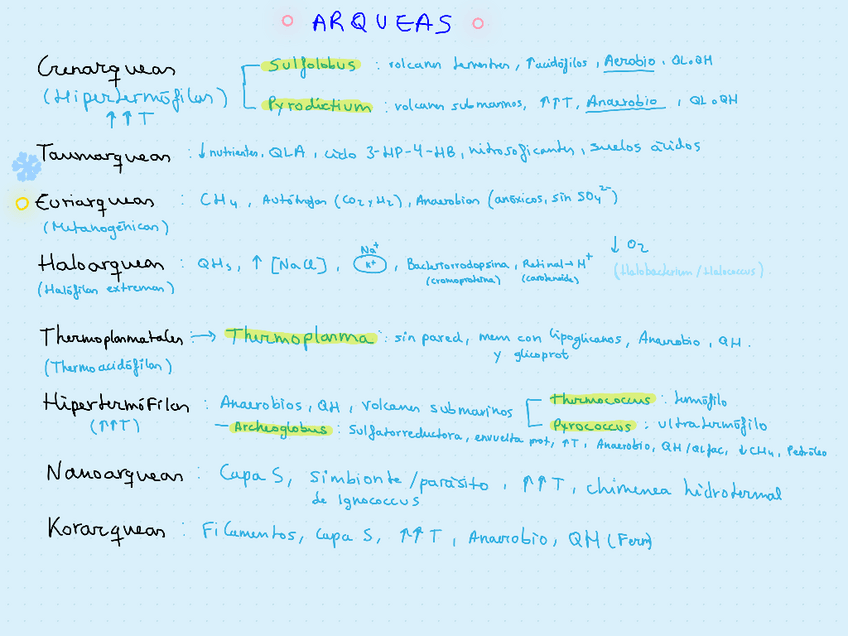 ARQUEAS
Crenarqueas
(Hipertermófilas)
↑↑T
Sulfolobus : volcanes terrestres, ↑acidófilos, Aerobio, QL o QH
Pyrodictium : volcanes submarinos, ↑↑↑T, Anaerobio, QL o QH
Taumarqueas : ↓nutrientes, QLA, ciclo 3-HP-4-HB, nitrosoficantes, suelos ácidos
Euriarqueas : CH4, Autótrofas (CO2 y H2), Anaerobias (anóxicos, sin SO4²⁻)
(Metanogénicas)
Haloarqueas : QHs, ↑ [NaCl], Na⁺ K⁺, Bacteriorrodopsina, Retinal → H⁺ ↓ O2
(Halófilas extremas) (cromoproteína) (carotenoide) (Halobacterium / Halococcus)
Thermoplasmatales → Thermoplasma : sin pared, mem con lipoglicanos, Anaerobio, QH.
(Thermoacidófilas) y glicoprot
Hipertermófilas : Anaerobios, QH, volcanes submarinos
(↑↑T)
Thermococcus : termófilo
Pyrococcus : ultratermófilo
Archeoglobus : Sulfatorreductora, envuelta prot, ↑T, Anaerobio, QH/QLfac, ↓CH4, Petróleo
Nanoarqueas : Capa S, simbionte/parásito, ↑↑T, chimenea hidrotermal
de Ignococcus
Korarqueas : Filamentos, Capa S, ↑↑T, Anaerobio, QH (Ferm)